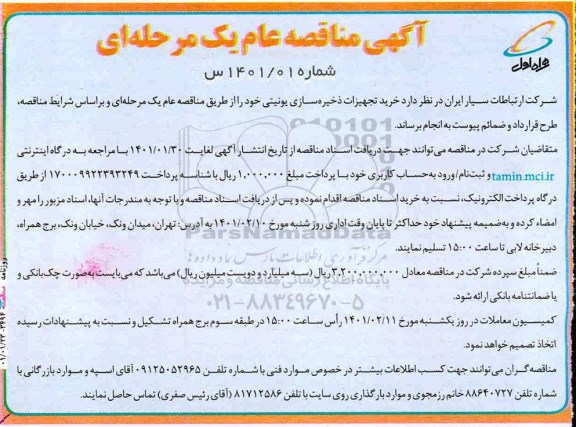 آگهی مناقصه عام یک مرحله‌ای
شماره ۱۴۰۱/۰۱ س
همراه اول
شرکت ارتباطات سیار ایران در نظر دارد خرید تجهیزات ذخیره‌سازی یونیتی خود را از طریق مناقصه عام یک مرحله‌ای و براساس شرایط مناقصه،
طرح قرارداد و ضمائم پیوست به انجام برساند.
متقاضیان شرکت در مناقصه می‌توانند جهت دریافت اسناد مناقصه از تاریخ انتشار آگهی لغایت ۱۴۰۱/۰۱/۳۰ با مراجعه به درگاه اینترنتی
tamin.mci.ir و ثبت‌نام/ورود به حساب کاربری خود با پرداخت مبلغ ۱,۰۰۰,۰۰۰ ریال با شناسه پرداخت ۱۷۰۰۰۹۹۲۲۳۹۳۲۴۹ از طریق
درگاه پرداخت الکترونیک، نسبت به خرید اسناد مناقصه اقدام نموده و پس از دریافت اسناد مناقصه و با توجه به مندرجات آنها، اسناد مزبور را مهر و
امضاء کرده و به ضمیمه پیشنهاد خود حداکثر تا پایان وقت اداری روز شنبه مورخ ۱۴۰۱/۰۲/۱۰ به آدرس: تهران، میدان ونک، خیابان ونک، برج همراه،
دبیرخانه لابی تا ساعت ۱۵:۰۰ تسلیم نمایند.
ParsNamadData
مرکز فرآوری اطلاعات پارس نماد داده‌ها
ضمناً مبلغ سپرده شرکت در مناقصه معادل ۳,۲۰۰,۰۰۰,۰۰۰ ریال (سه میلیارد و دویست میلیون ریال) می‌باشد که می‌بایست به صورت چک بانکی و
پایگاه اطلاع رسانی مناقصه و مزایده
یا ضمانتنامه بانکی ارائه شود.
۰۲۱-۸۸۳۴۹۶۷۰-۵
کمیسیون معاملات در روز یکشنبه مورخ ۱۴۰۱/۰۲/۱۱ رأس ساعت ۱۵:۰۰ در طبقه سوم برج همراه تشکیل و نسبت به پیشنهادات رسیده
اتخاذ تصمیم خواهد نمود.
مناقصه‌گران می‌توانند جهت کسب اطلاعات بیشتر در خصوص موارد فنی با شماره تلفن ۰۹۱۲۵۰۵۲۹۶۵ آقای اسپه و موارد بازرگانی با
شماره تلفن ۸۸۶۴۰۷۲۷ خانم رزمجوی و موارد بارگذاری روی سایت با تلفن ۸۱۷۱۲۵۸۶ (آقای رئیس صفری) تماس حاصل نمایند.